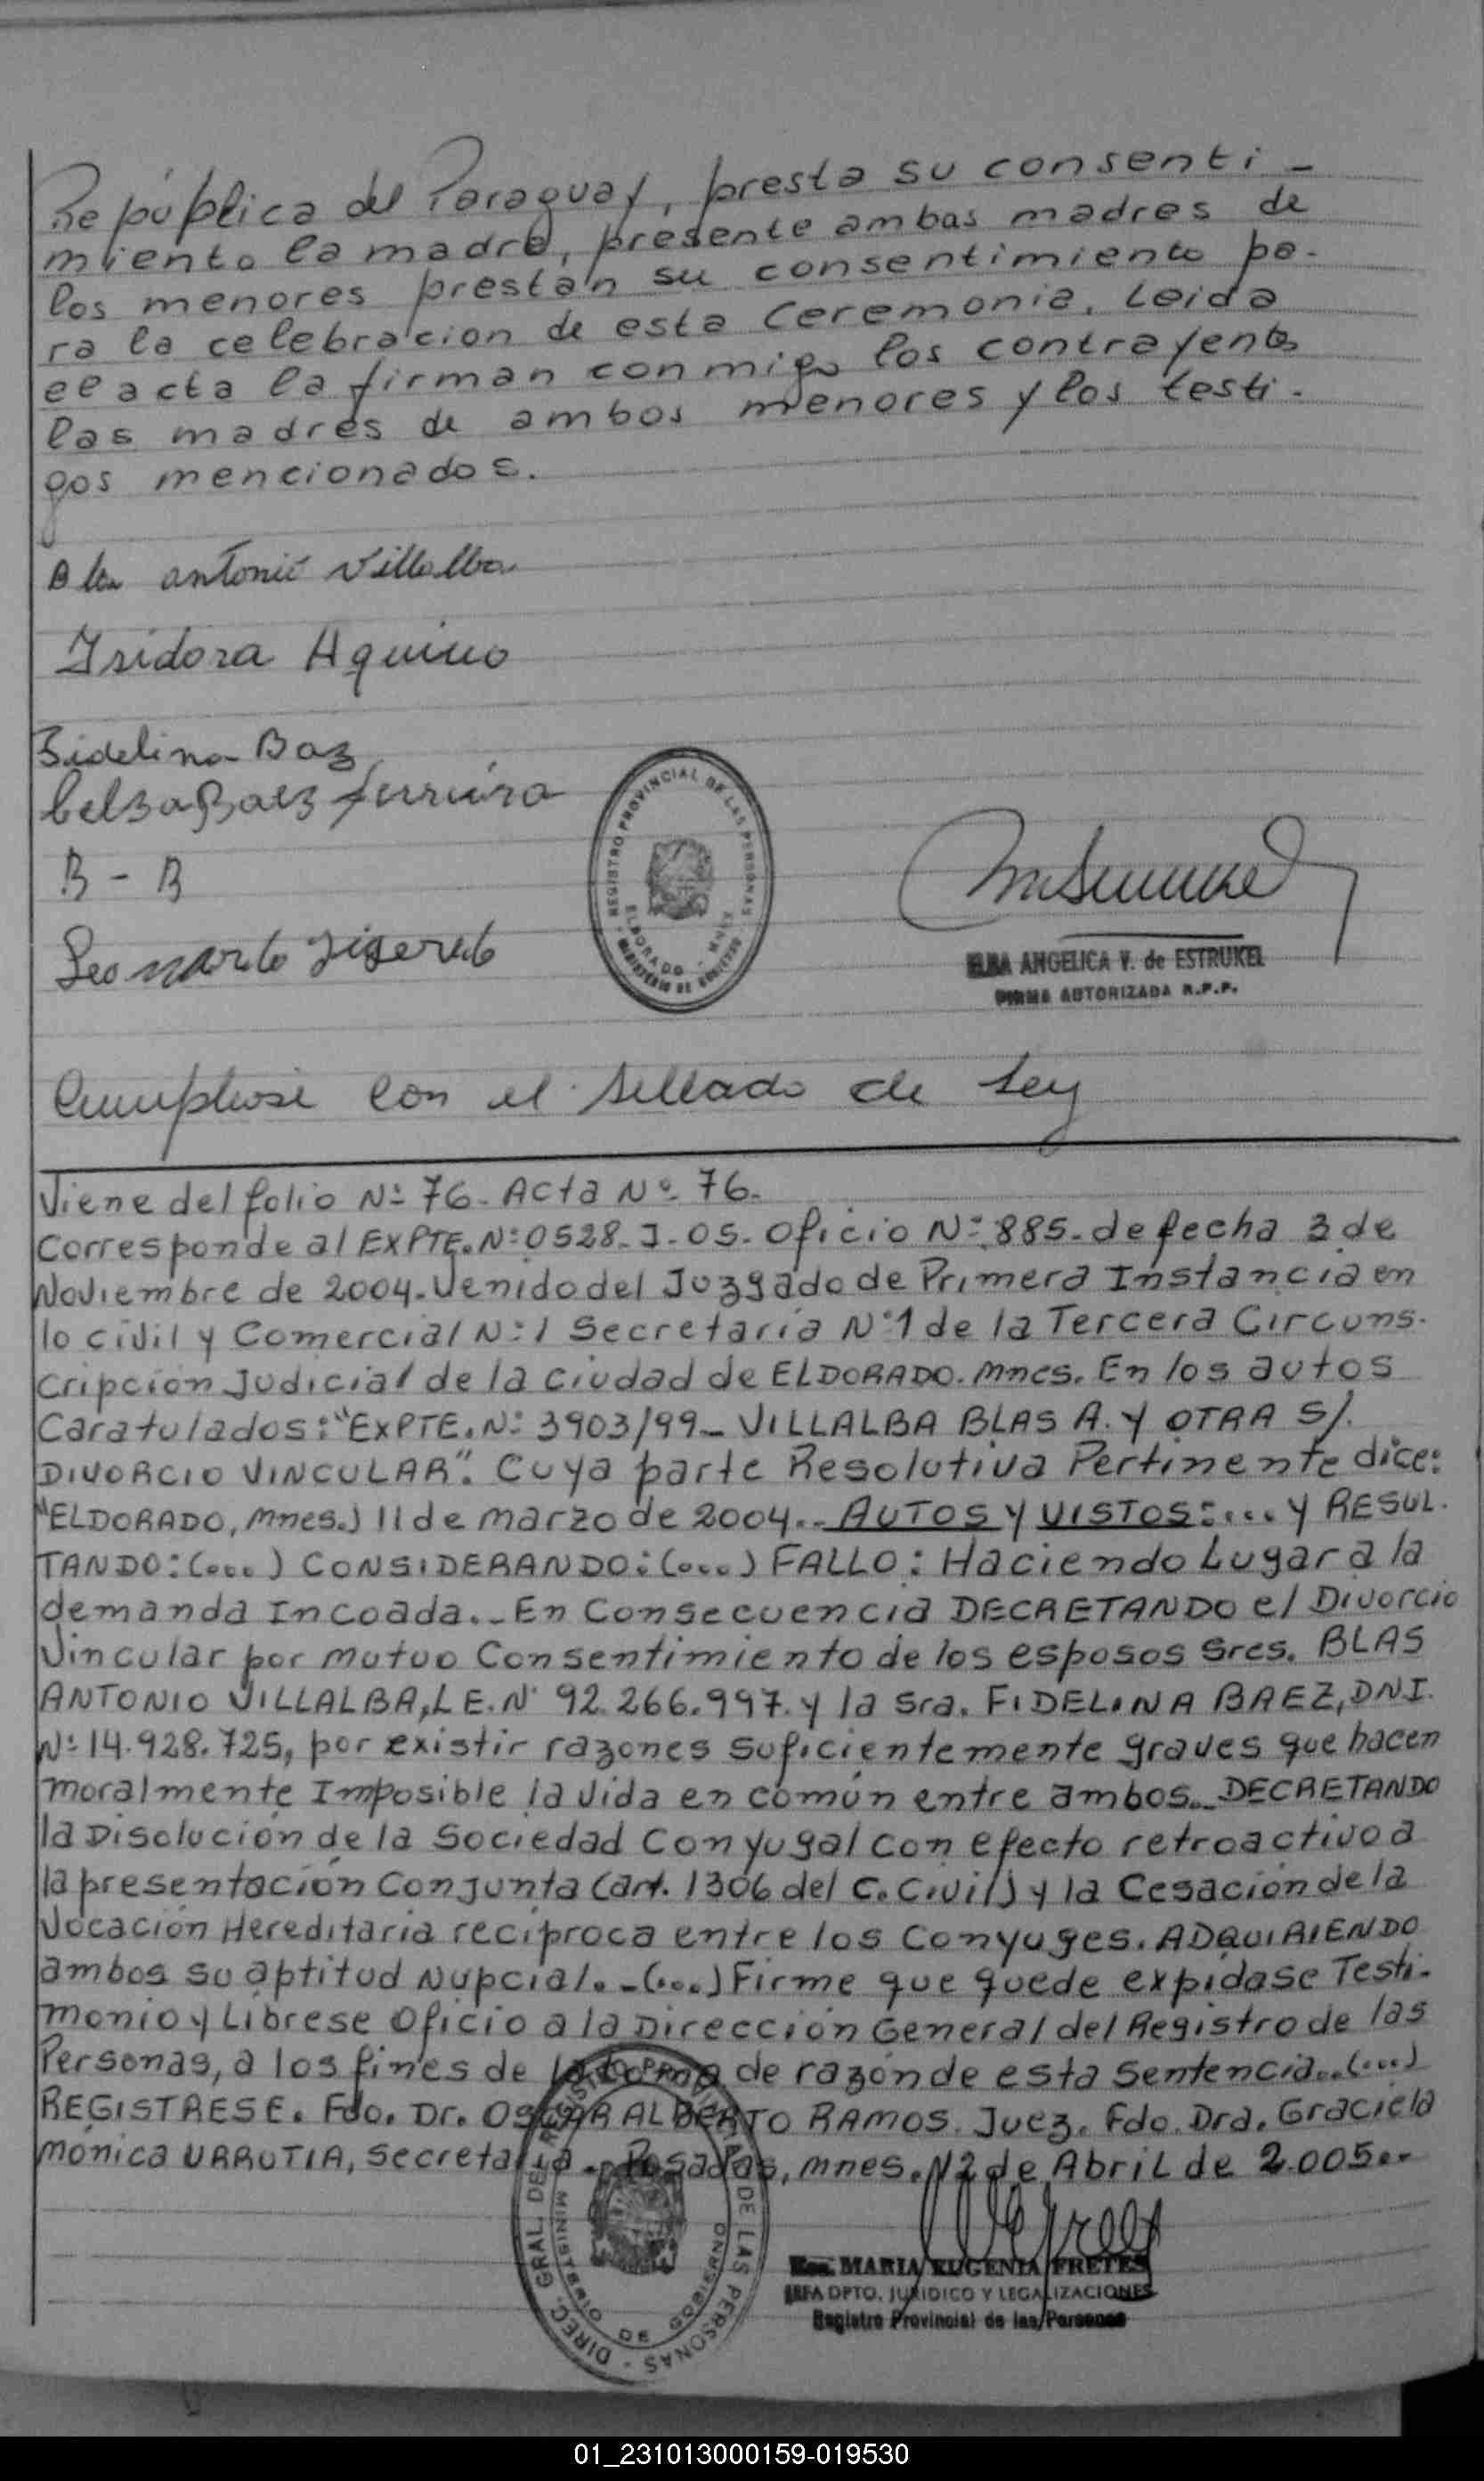 República del Paraguay, presta su consenti-
miento la madre, presente ambas madres de
los menores prestan su consentimiento pa-
ra la celebracion de esta ceremonia. Leida
el acta la firman conmigo los contrayentes
las madres de ambos menores y los testi-
gos mencionados.
antonio Villalba
Isidora Aquino
Fidelina Baz
Celsa Baez ferreira
B - B
Leonardo
REGISTRO PROVINCIAL DE LAS PERSONAS
ELDORADO - MNES
MINISTERIO DE GOBIERNO
ELBA ANGELICA V. de ESTRUKEL
FIRMA AUTORIZADA R.P.P.
Cumplese con el sellado de Ley
Viene del folio Nº 76. Acta Nº 76.
Corresponde al EXPTE. Nº 0528-J-05. Oficio Nº 885. de fecha 3 de
Noviembre de 2004. Venido del Juzgado de Primera Instancia en
lo civil y Comercial Nº 1 Secretaría Nº 1 de la Tercera Circuns-
cripción Judicial de la ciudad de ELDORADO. Mnes. En los autos
Caratulados: "EXPTE. Nº 3903/99- VILLALBA BLAS A. y OTRA S/.
DIVORCIO VINCULAR". Cuya parte Resolutiva Pertinente dice:
"ELDORADO, Mnes.) 11 de marzo de 2004.. AUTOS y VISTOS:... y RESUL-
TANDO: (...) CONSIDERANDO: (...) FALLO: Haciendo Lugar a la
demanda Incoada.- En Consecuencia DECRETANDO el Divorcio
Vincular por mutuo Consentimiento de los esposos Sres. BLAS
ANTONIO VILLALBA, L.E. Nº 92.266.997. y la Sra. FIDELINA BAEZ, DNI.
Nº 14.928.725, por existir razones suficientemente graves que hacen
moralmente Imposible la vida en común entre ambos.- DECRETANDO
la Disolución de la Sociedad Conyugal con efecto retroactivo a
la presentación Conjunta (art. 1306 del C. Civil) y la Cesación de la
Vocación Hereditaria recíproca entre los Conyuges. ADQUIRIENDO
ambos su aptitud Nupcial.-(...) Firme que quede expídase Testi-
monio y Líbrese Oficio a la Dirección General del Registro de las
Personas, a los fines de la toma de razón de esta Sentencia..(...)
REGISTRESE. Fdo. Dr. OSCAR ALBERTO RAMOS. Juez. Fdo. Dra. Graciela
Mónica URRUTIA, Secretaria.- Posadas, Mnes. 12 de Abril de 2.005.-
DIREC. GRAL. DEL REGISTRO PROVINCIAL DE LAS PERSONAS
MINISTERIO DE GOBIERNO
MARIA EUGENIA FRETES
JEFA DPTO. JURIDICO Y LEGALIZACIONES
Registro Provincial de las Personas
01_231013000159-019530